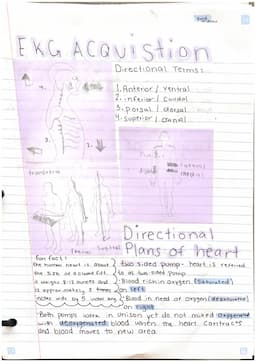 EKG ACQUISTION
Directional Terms:
1. Anterior / ventral
2. inferior / caudal
3. Dorsal / dorsal
4. superior / cranial
4.
1.
3.
2.
lateral
medial
Transverse
Frontal
Sagittal
Directional
Plans of heart
fun fact!
the human heart is about
the size of a closed fist.
it weighs 8-12 ounces and
is approximately 5 inches
wide by
two sided pump - heart is referred
to as two sided pump
Blood rich in oxygen (Saturated)
on left
Blood in need of oxygen (desaturated)
on right
Both pumps work in unison yet do not mixed oxygenated
with deoxygenated blood when the heart contracts
and blood moves to new area